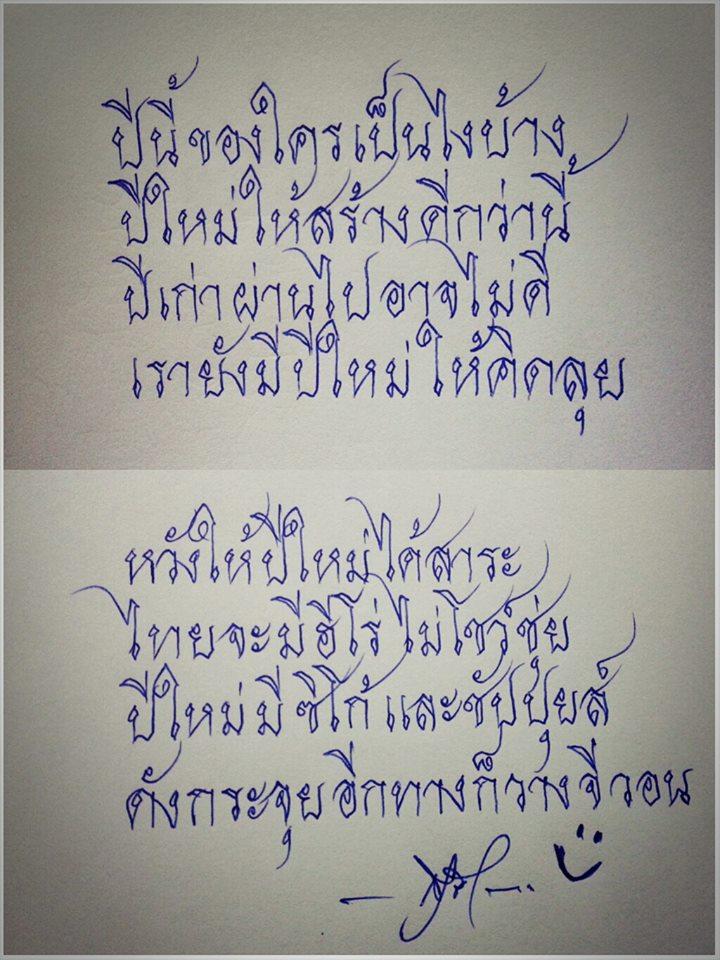 ปีนี้ของใครเป็นไงบ้าง
ปีใหม่ให้สร้างดีกว่านี้
ปีเก่าผ่านไปอาจไม่ดี
เรายังมีปีใหม่ให้คิดลุย
หวังให้ปีใหม่ได้สาระ
ไทยจะมีฮีโร่ไม่โชว์ชุ่ย
ปีใหม่มีซิโก้และชัปปุยส์
ดังกระจุยอีกทางก็วางจีวอน